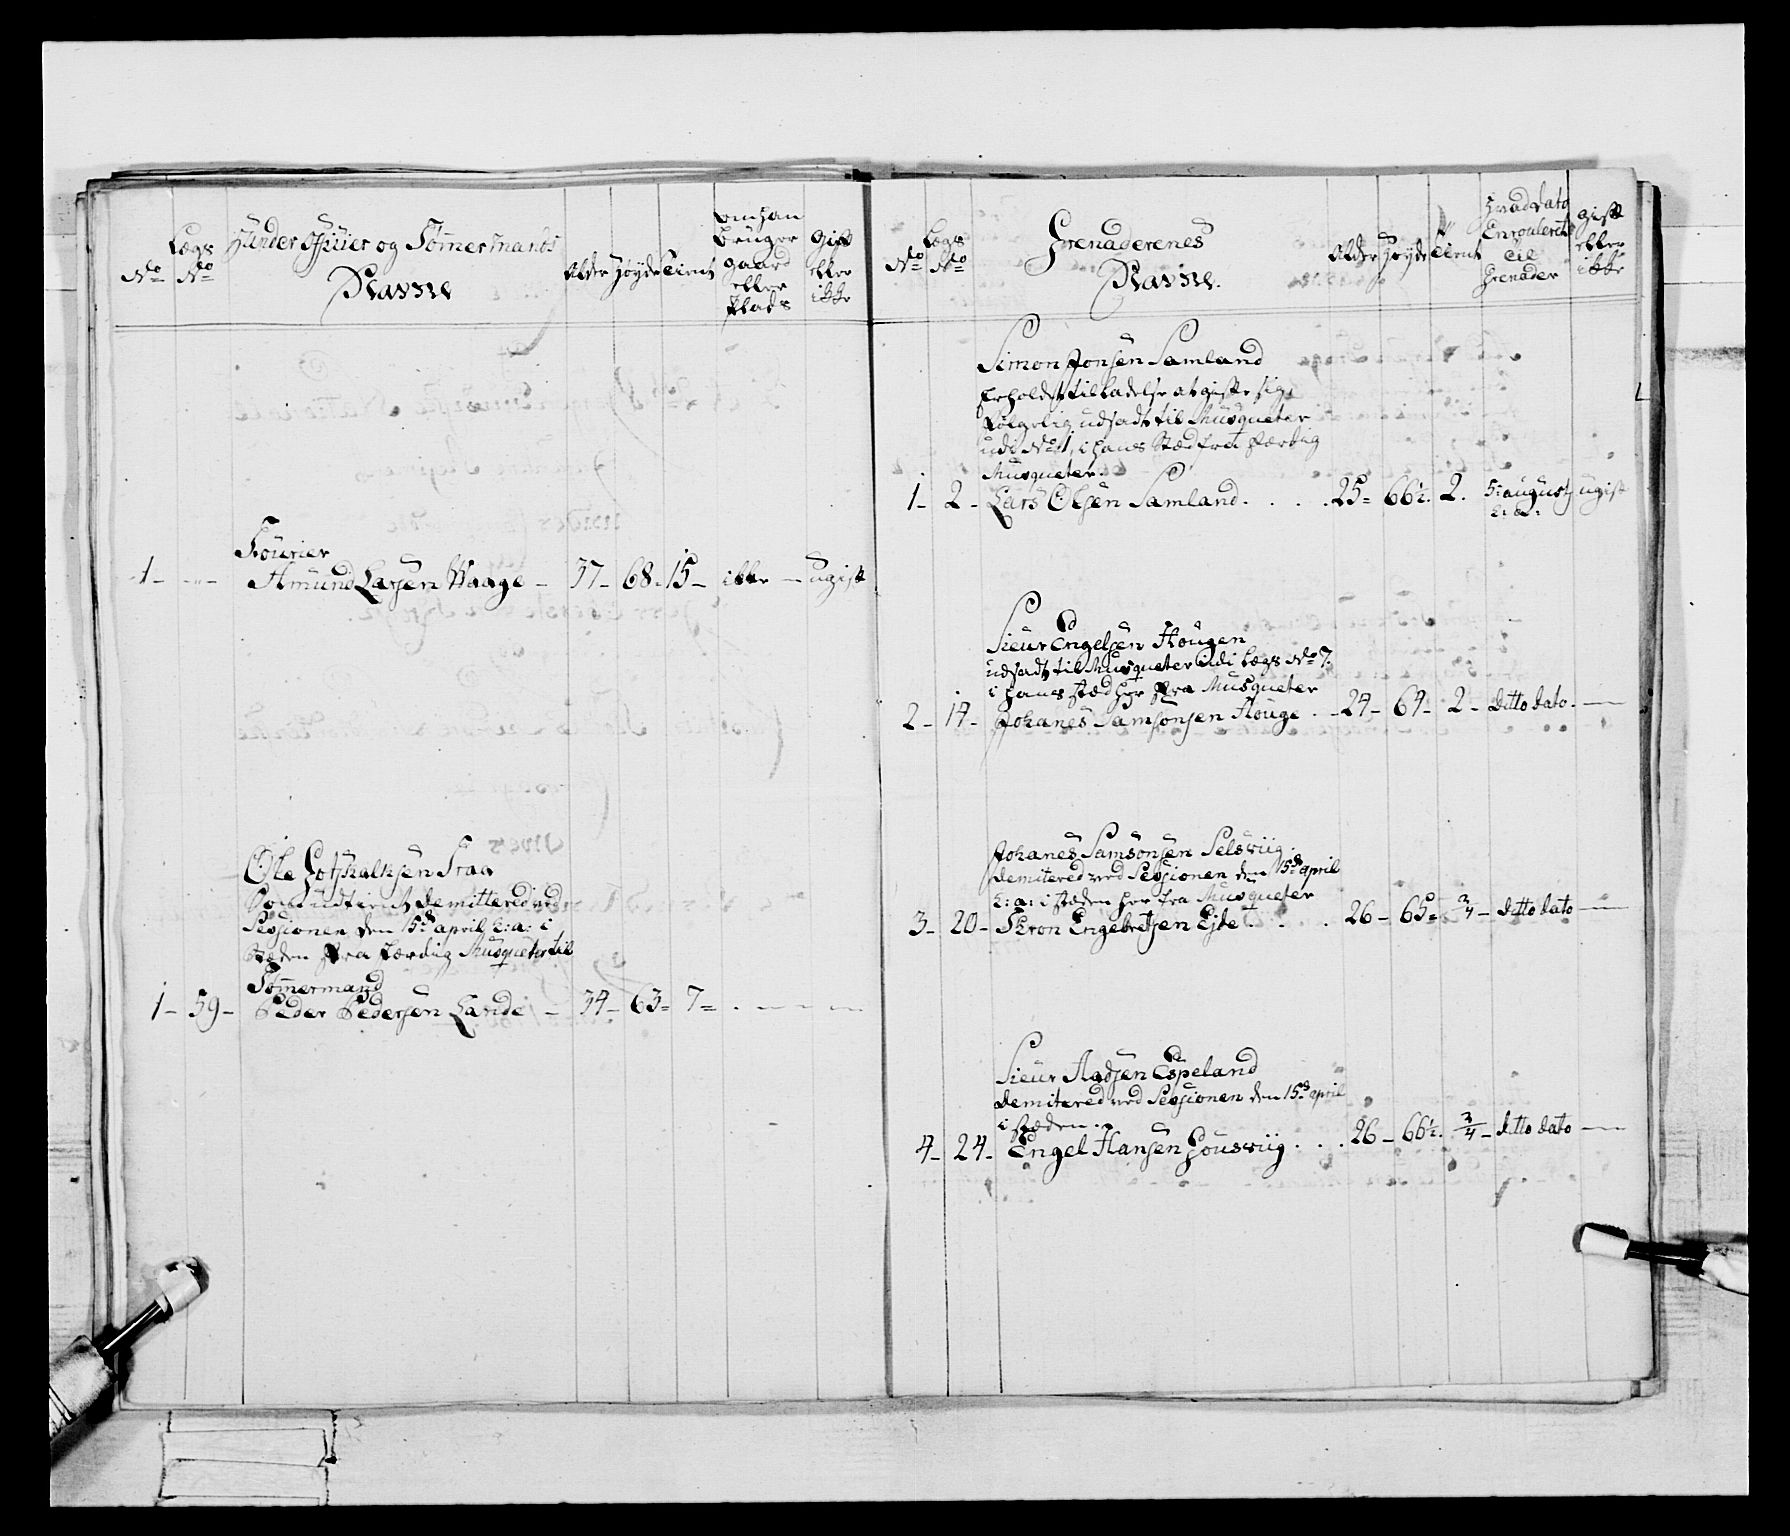 No
Lægs No
Under Officier og Tømermands Navne
Alder
Høyde
Tient
om han bruger gaard eller plads
Gift eller ikke
Fourier
1 - -"- Amund Larsen Waage - 37 - 68 - 15 - ikke - ugift
Ole Gotskalksen Traa
demittered ved
Sessionen den 15de april h: a: i
Stæden fra færdig Musqueter til
Tømermand
1 - 59 - Peder Pedersen Lande - 34 - 63 = 7 =
No
Lægs No
Grenaderenes Navne.
Alder
Høyde
Tient
Hvad dato Enrouleret til Grenader
gift eller ikke
Simon Jonsen Samland
Erholdet tilladelse at gifte sig,
følgelig udsadt til Musqueter
udi No 1, i hans Stæd fra færdig
Musqueter.
1 - 2 - Lars Olsen Samland . . . . 25 = 66½. 2. 5: august h: a: ugift
Sieur Engelsen Hougen
udsadt til Musqueter udi Lægs No 7.
i hans stæd her fra Musqueter
2 - 14 - Johanes Samsonsen Houge . - 24 - 64 - 2 - ditto dato -
Johanes Samsonsen Selsviig.
demitered ved Sessionen den 15de april
h: a: i stæden her fra Musqueter
3 - 20 - Engebretsen Eide . . . 26 - 65 = ¾ - ditto dato -
Sieur Aadsen Espeland
demitered ved Sessionen den 15de april
i stæden.
4 - 24 - Engel Hansen Housviig . . . 26 - 66½. ¾ - ditto dato -